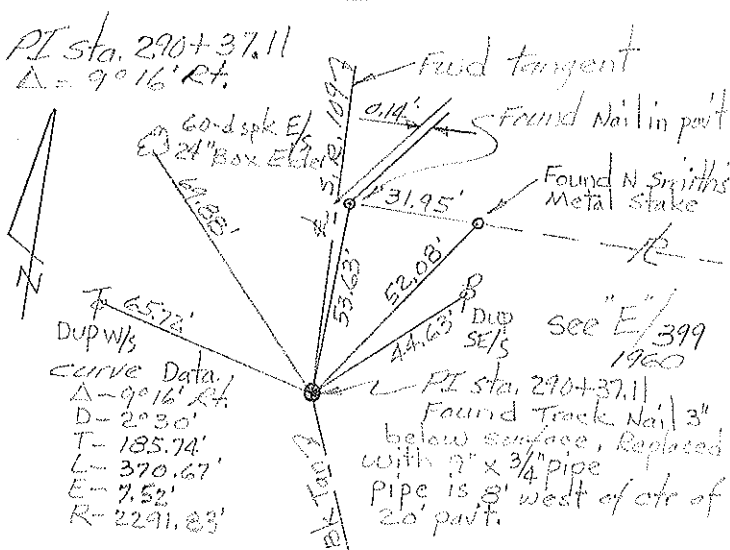 PI sta. 290+37.11
Δ - 9°16' Rt.
Fwd tangent
0.14'
Found Nail in pav't
60-d spk E/s
24" Box Elder
S.R. 109
69.88'
31.95'
Found N Smith's
Metal Stake
53.63'
52.08'
N
65.72'
DUP W/s
44.63'
DUP
SE/s
see "E"/399
1960
curve Data
Δ - 9°16' Rt.
D - 2°30'
T - 185.74'
L - 370.67'
E - 7.52'
R - 2291.83'
PI sta. 290+37.11
Found Track Nail 3"
below surface, Replaced
with 9" x 3/4" pipe
pipe is 8' west of ctr of
20' pav't.
Bk Tan